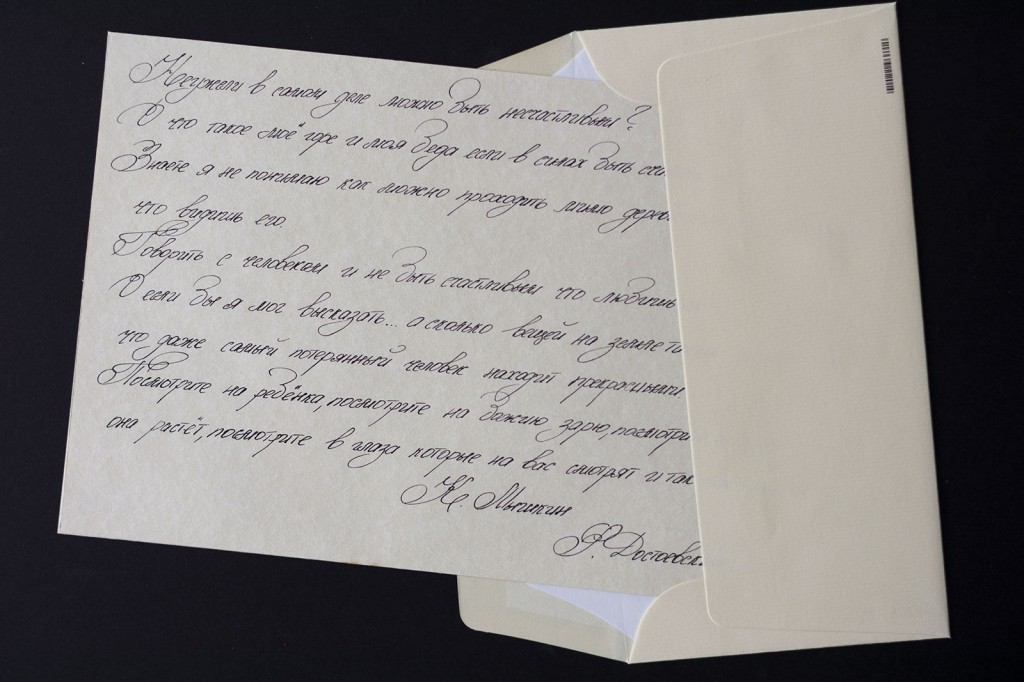 Неужели в самом деле можно быть несчастливым?
О что такое моё горе и моя беда если в силах быть сча
Знаете я не понимаю как можно проходить мимо дерев
что видишь его.
Говорить с человеком и не быть счастливым что любишь
О если бы я мог высказать... а сколько вещей на земле та
что даже самый потерянный человек находит прекрасными
Посмотрите на ребёнка, посмотрите на божию зарю, посмотри
она растёт, посмотрите в глаза которые на вас смотрят и так
К. Мышкин
Ф. Достоевск